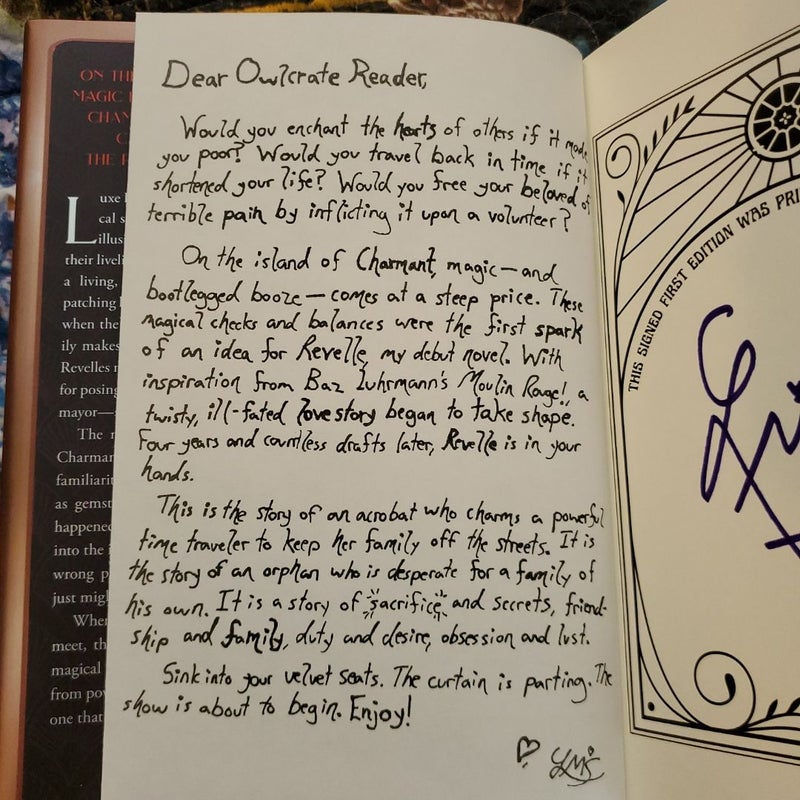 ON TH
MAGIC
CHAN
C
THE
Luxe
cal s
illus
their liveli
a living,
patching
when the
ily makes
Revelles
for posing
mayor—
The
Charman
familiarit
as gemst
happened
into the
wrong p
just mig
When
meet, th
magical
from pow
one that
Dear Owlcrate Reader,
Would you enchant the hearts of others if it made
you poor? Would you travel back in time if it
shortened your life? Would you free your beloved of
terrible pain by inflicting it upon a volunteer?
On the island of Charmant, magic—and
bootlegged booze—comes at a steep price. These
magical checks and balances were the first spark
of an idea for Revelle, my debut novel. With
inspiration from Baz Luhrmann's Moulin Rouge!, a
twisty, ill-fated love story began to take shape.
Four years and countless drafts later, Revelle is in your
hands.
This is the story of an acrobat who charms a powerful
time traveler to keep her family off the streets. It is
the story of an orphan who is desperate for a family of
his own. It is a story of sacrifice and secrets, friend-
ship and family, duty and desire, obsession and lust.
Sink into your velvet seats. The curtain is parting. The
show is about to begin. Enjoy!
LMS
THIS SIGNED FIRST EDITION WAS PRI